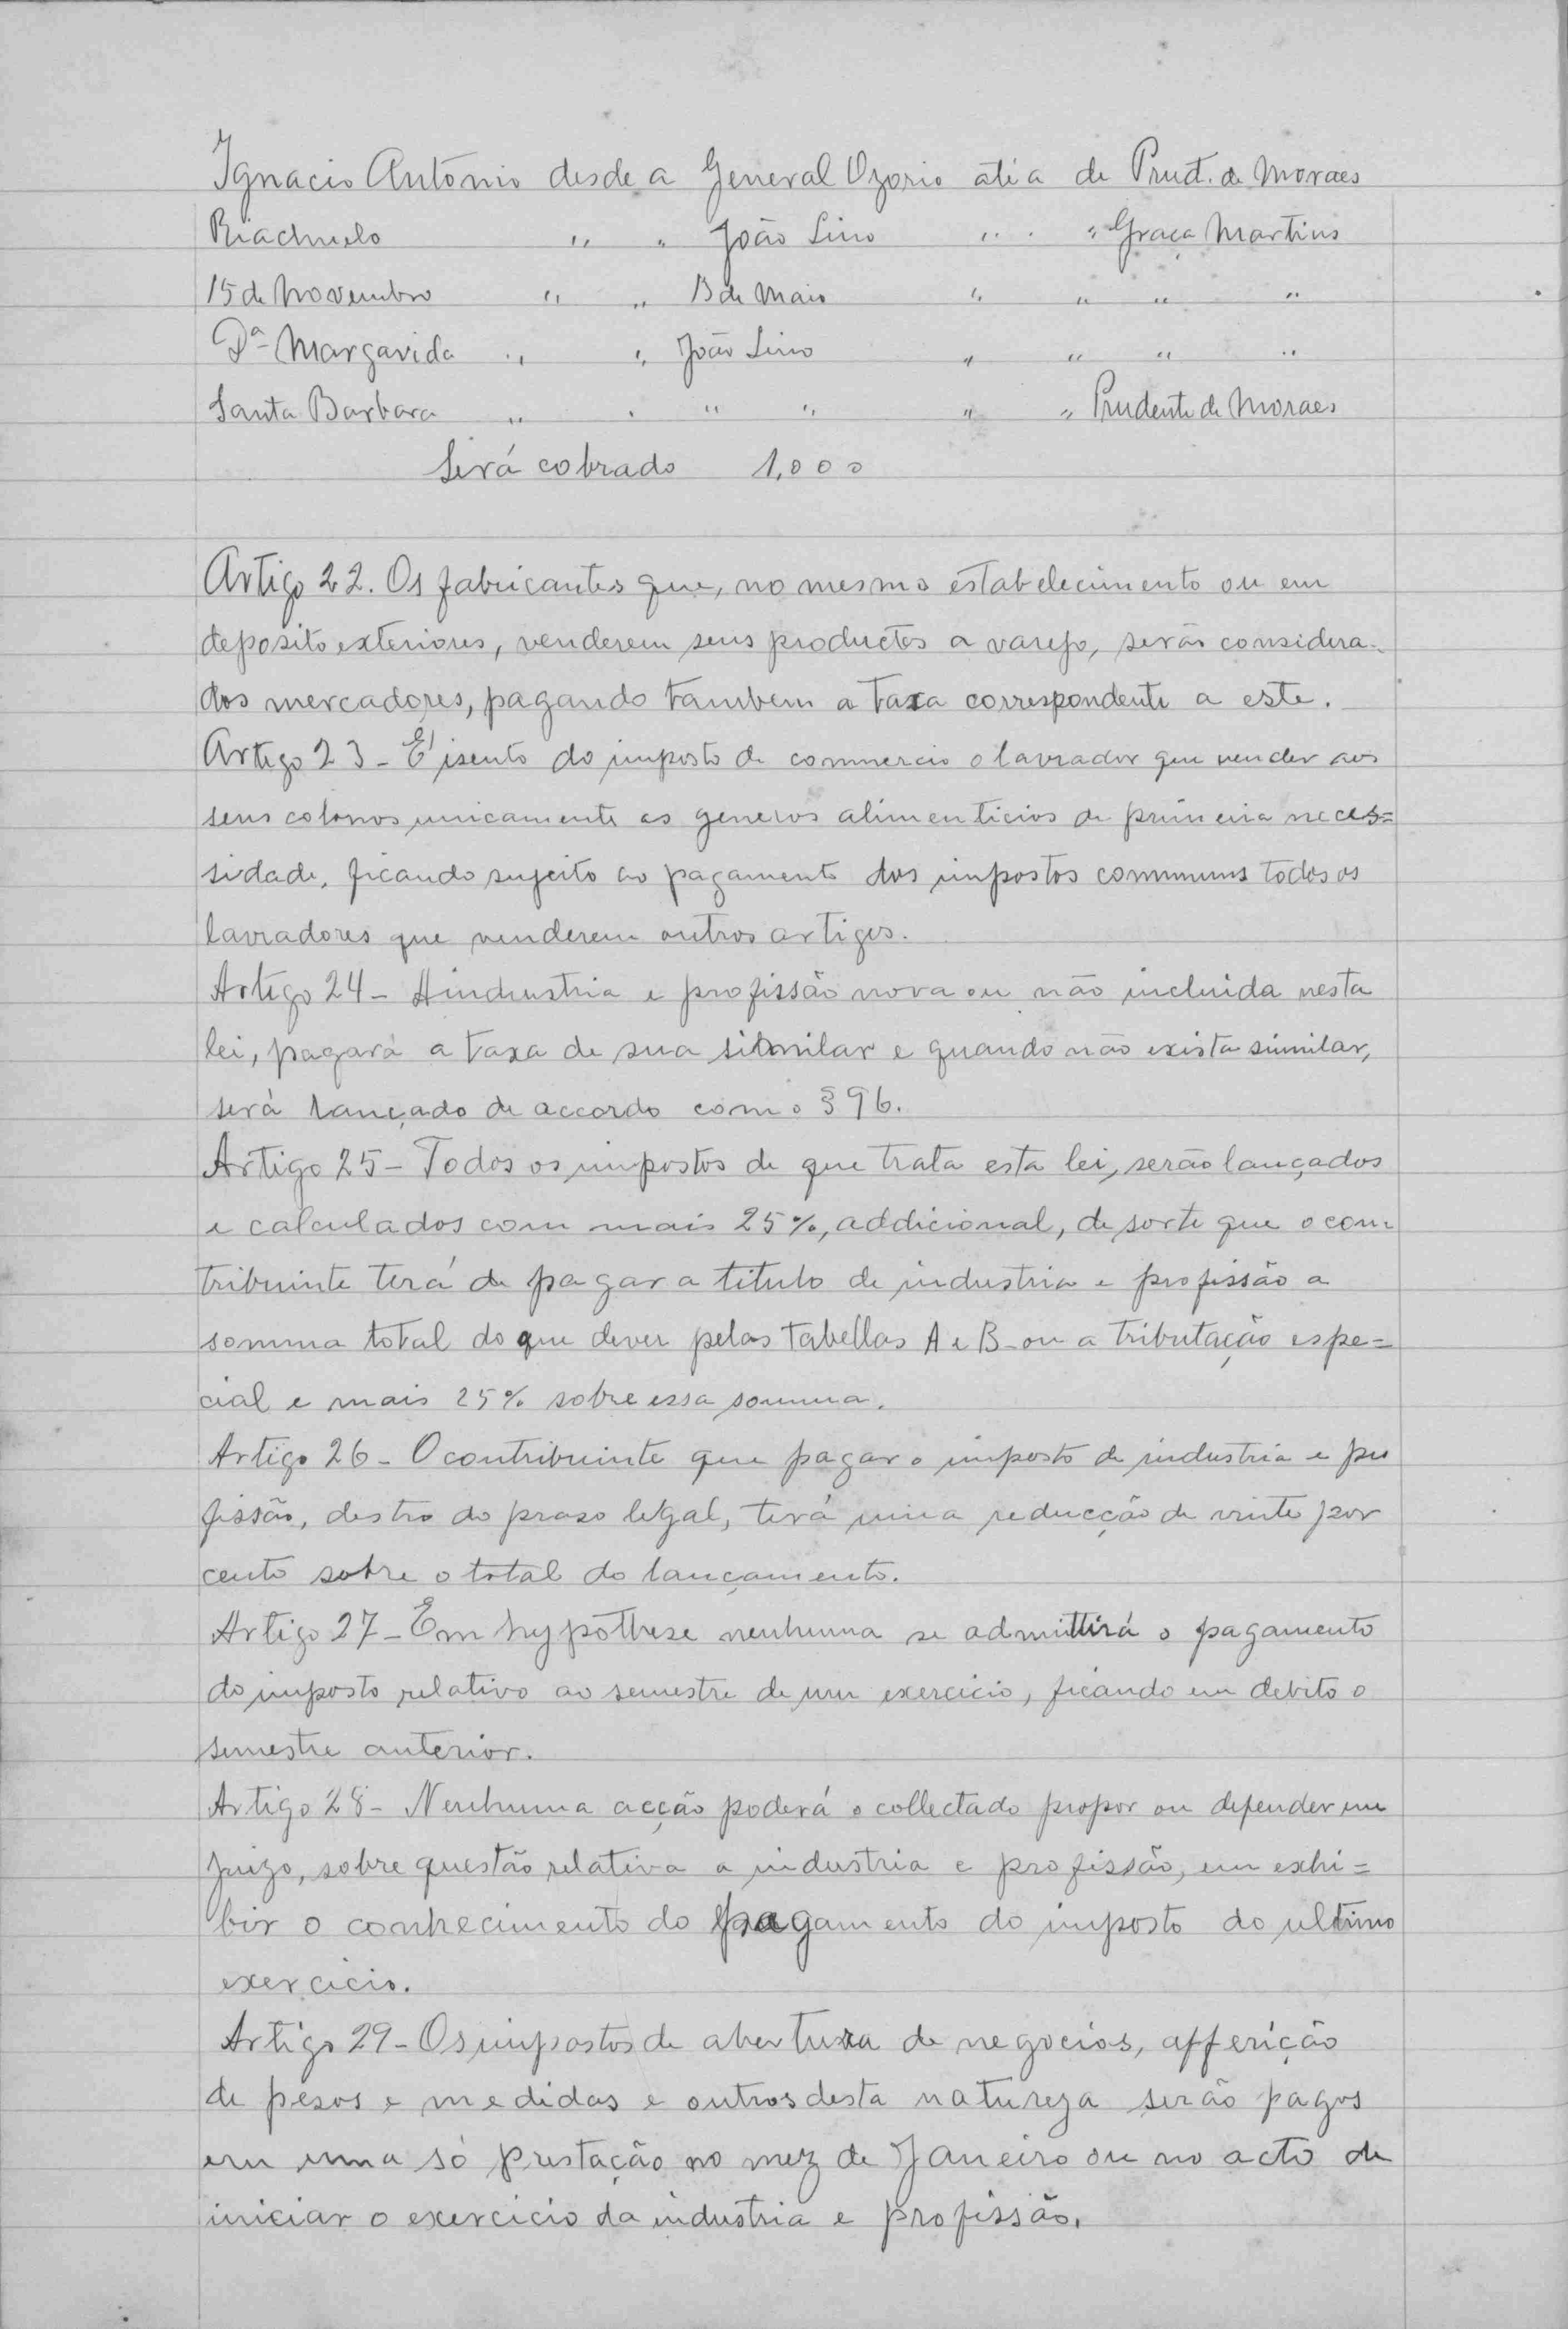 Ignacio Antonio desde a General Ozorio até a de Prud. de Moraes
Riachuelo " " João Lino " " " Graça Martins
15 de Novembro " " 13 de Maio " " " "
Dª Margarida " " João Lino " " " "
Santa Barbara " " " " " " Prudente de Moraes
Será cobrado 1,000
Artigo 22. Os fabricantes que, no mesmo estabelecimento ou em
deposito exteriores, venderem seus productos a varejo, serão considera-
dos mercadores, pagando tambem a taxa correspondente a este.
Artigo 23 - E' isento do imposto de commercio o lavrador que vender aos
seus colonos unicamente os generos alimenticios de primeira neces=
sidade, ficando sujeito ao pagamento dos impostos communs todos os
lavradores que venderem outros artigos.
Artigo 24 - A industria e profissão nova ou não incluida nesta
lei, pagará a taxa de sua similar e quando não exista similar,
será lançado de accordo com o § 96.
Artigo 25 - Todos os impostos de que trata esta lei, serão lançados
e calculados com mais 25%, addicional, de sorte que o con-
tribuinte terá de pagar a titulo de industria e profissão a
somma total do que dever pelas tabellas A e B - ou a tributação espe=
cial e mais 25% sobre essa somma.
Artigo 26 - O contribuinte que pagar o imposto de industria e pro
fissão, destro do praso legal, terá uma reducção de vinte por
cento sobre o total do lançamento.
Artigo 27 - Em hypothese nenhuma se admittirá o pagamento
do imposto relativo ao semestre de um exercicio, ficando em debito o
semestre anterior.
Artigo 28 - Nenhuma acção poderá o collectado propor ou defender em
juizo, sobre questão relativa a industria e profissão, em exhi=
bir o conhecimento do pagamento do imposto do ultimo
exercicio.
Artigo 29 - Os impostos de abertura de negocios, afferição
de pesos e medidas e outros desta natureza serão pagos
em uma só prestação no mez de Janeiro ou no acto de
iniciar o exercicio da industria e profissão.